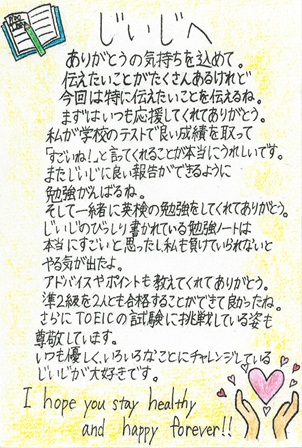 じいじへ
ありがとうの気持ちを込めて。
伝えたいことがたくさんあるけれど
今回は特に伝えたいことを伝えるね。
まずはいつも応援してくれてありがとう。
私が学校のテストで良い成績を取って
「すごいね!」と言ってくれることが本当にうれしいです。
またじいじに良い報告ができるように
勉強がんばるね。
そして一緒に英検の勉強をしてくれてありがとう。
じいじのびっしり書かれている勉強ノートは
本当にすごいと思ったし私も負けていられないと
やる気が出たよ。
アドバイスやポイントも教えてくれてありがとう。
準2級を2人とも合格することができて良かったね。
さらにTOEICの試験に挑戦している姿も
尊敬しています。
いつも優しく、いろいろなことにチャレンジしている
じいじが大好きです。
I hope you stay healthy
and happy forever!!